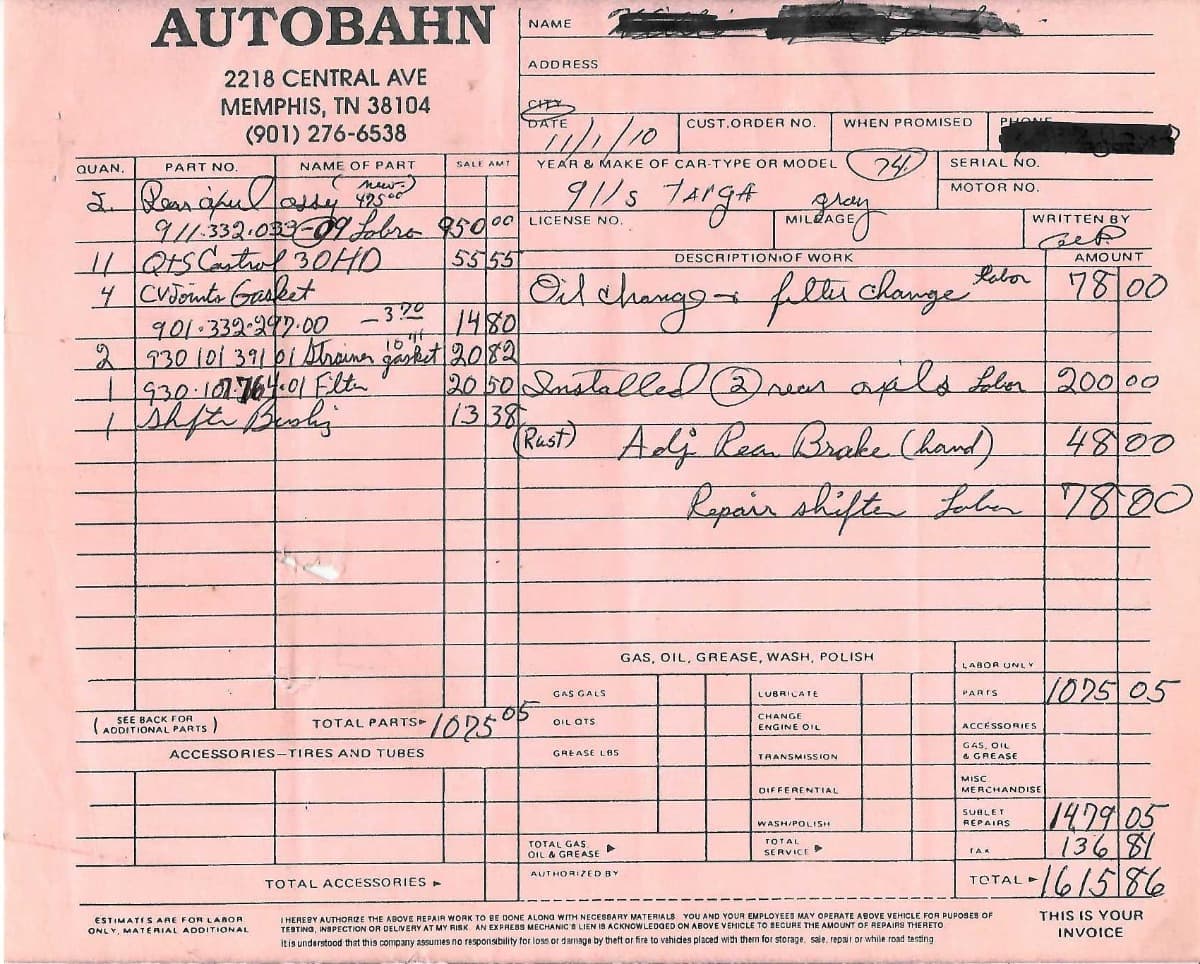 AUTOBAHN
2218 CENTRAL AVE
MEMPHIS, TN 38104
(901) 276-6538
NAME
ADDRESS
CITY
DATE 11/1/10 CUST.ORDER NO. WHEN PROMISED PHONE
YEAR & MAKE OF CAR-TYPE OR MODEL 74 SERIAL NO.
911s TARGA gray MOTOR NO.
LICENSE NO. MILEAGE WRITTEN BY
QUAN. PART NO. NAME OF PART SALE AMT
(new)
2 Rear axel assy 475 00
911.332.033-09 Lobro 950 00
11 Qts Castrol 30HD 55 55
4 CV Joints Gasket
901.332.297.00 - 3.70 14 80
2 930 101 391 01 Strainer gasket 10 41 20 82
1 930.107.764.01 Filter 20 50
1 Shifter Bushig 13 38
DESCRIPTION OF WORK AMOUNT
Oil change - filter change labor 78 00
Installed (2) rear axels Labor 200 00
(Rust) Adj Rear Brake (hand) 48 00
Repair shifter Labor 78 00
(SEE BACK FOR ADDITIONAL PARTS) TOTAL PARTS 1075 05
ACCESSORIES—TIRES AND TUBES
TOTAL ACCESSORIES
GAS, OIL, GREASE, WASH, POLISH
GAS GALS LUBRICATE
OIL QTS CHANGE ENGINE OIL
GREASE LBS TRANSMISSION
DIFFERENTIAL
WASH/POLISH
TOTAL GAS, OIL & GREASE TOTAL SERVICE
AUTHORIZED BY
LABOR ONLY
PARTS 1075 05
ACCESSORIES
GAS, OIL & GREASE
MISC MERCHANDISE
SUBLET REPAIRS 1479 05
TAX 136 81
TOTAL 1615 86
ESTIMATES ARE FOR LABOR
ONLY, MATERIAL ADDITIONAL
I HEREBY AUTHORIZE THE ABOVE REPAIR WORK TO BE DONE ALONG WITH NECESSARY MATERIALS. YOU AND YOUR EMPLOYEES MAY OPERATE ABOVE VEHICLE FOR PUPOSES OF
TESTING, INSPECTION OR DELIVERY AT MY RISK. AN EXPRESS MECHANIC'S LIEN IS ACKNOWLEDGED ON ABOVE VEHICLE TO SECURE THE AMOUNT OF REPAIRS THERETO.
It is understood that this company assumes no responsibility for loss or damage by theft or fire to vehicles placed with them for storage, sale, repair or while road testing
THIS IS YOUR
INVOICE